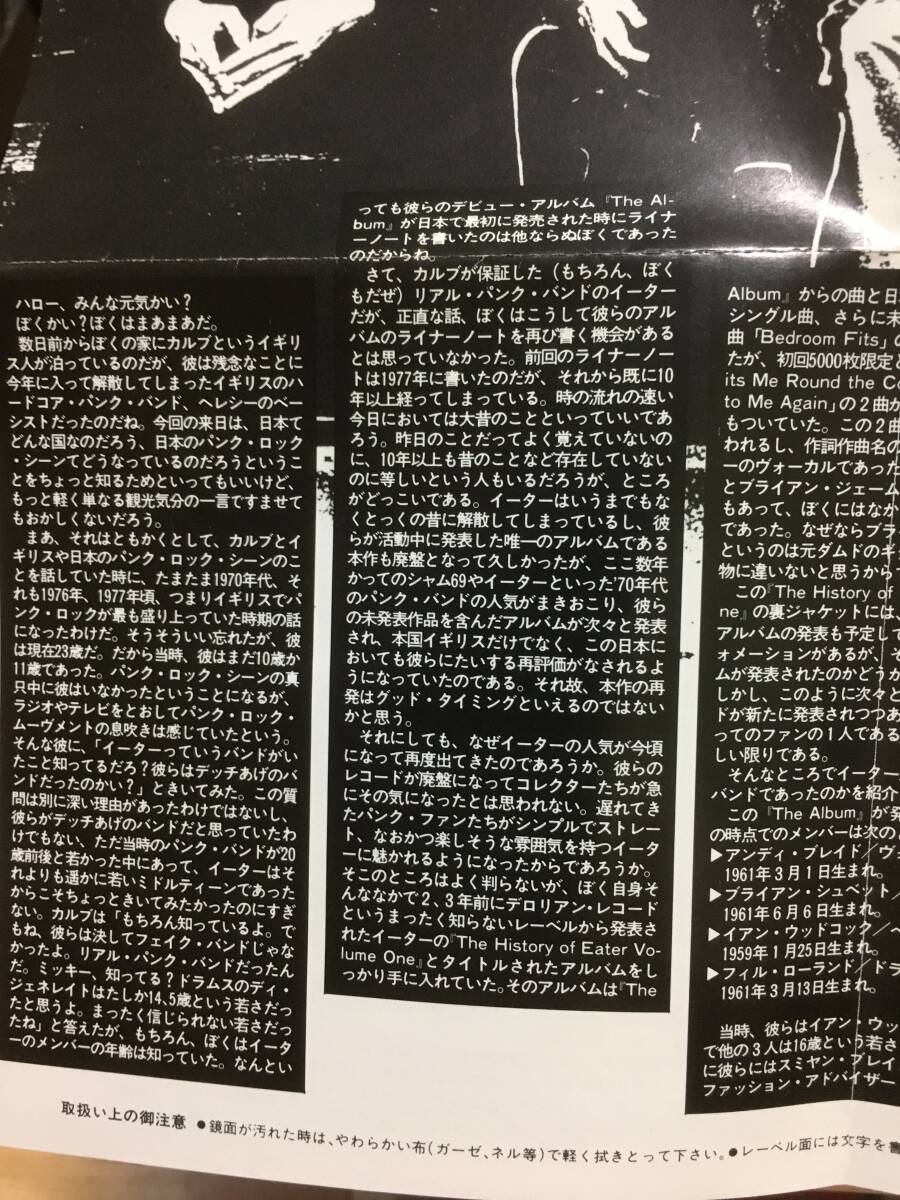 ハロー、みんな元気かい？
ぼくかい？ぼくはまあまあだ。
数日前からぼくの家にカルブというイギリ
ス人が泊っているのだが、彼は残念なことに
今年に入って解散してしまったイギリスのハ
ードコア・パンク・バンド、ヘレシーのベー
シストだったのだね。今回の来日は、日本て
どんな国なのだろう、日本のパンク・ロック
・シーンてどうなっているのだろうというこ
とをちょっと知るためといってもいいけど、
もっと軽く単なる観光気分の一言ですませて
もおかしくないだろう。
まあ、それはともかくとして、カルブとイ
ギリスや日本のパンク・ロック・シーンのこ
とを話していた時に、たまたま1970年代、そ
れも1976年、1977年頃、つまりイギリスでパ
ンク・ロックが最も盛り上っていた時期の話
になったわけだ。そうそういい忘れたが、彼
は現在23歳だ。だから当時、彼はまだ10歳か
11歳であった。パンク・ロック・シーンの真
只中に彼はいなかったということになるが、
ラジオやテレビをとおしてパンク・ロック・
ムーヴメントの息吹きは感じていたという。
そんな彼に、「イーターっていうバンドがい
たこと知ってるだろ？彼らはデッチあげのバ
ンドだったのかい？」ときいてみた。この質
問は別に深い理由があったわけではないし、
彼らがデッチあげのバンドだと思っていたわ
けでもない、ただ当時のパンク・バンドが20
歳前後と若かった中にあって、イーターはそ
れよりも遥かに若いミドルティーンであった
からこそちょっときいてみたかったのにすぎ
ない。カルブは「もちろん知っているよ。で
もね、彼らは決してフェイク・バンドじゃな
かったよ。リアル・パンク・バンドだったん
だ。ミッキー、知ってる？ドラムスのディ・
ジェネレイトはたしか14、5歳という若さだっ
たと思うよ。まったく信じられない若さだっ
たね」と答えたが、もちろん、ぼくはイータ
ーのメンバーの年齢は知っていた。なんとい
っても彼らのデビュー・アルバム『The Al-
bum』が日本で最初に発売された時にライナ
ーノートを書いたのは他ならぬぼくであった
のだからね。
さて、カルブが保証した（もちろん、ぼく
もだぜ）リアル・パンク・バンドのイーター
だが、正直な話、ぼくはこうして彼らのアル
バムのライナーノートを再び書く機会がある
とは思っていなかった。前回のライナーノー
トは1977年に書いたのだが、それから既に10
年以上経ってしまっている。時の流れの速い
今日においては大昔のことといっていいであ
ろう。昨日のことだってよく覚えていないの
に、10年以上も昔のことなど存在していない
のに等しいという人もいるだろうが、ところ
がどっこいである。イーターはいうまでもな
くとっくの昔に解散してしまっているし、彼
らが活動中に発表した唯一のアルバムである
本作も廃盤となって久しかったが、ここ数年
かってのシャム69やイーターといった'70年代
のパンク・バンドの人気がまきおこり、彼ら
の未発表作品を含んだアルバムが次々と発表
され、本国イギリスだけでなく、この日本に
おいても彼らにたいする再評価がなされるよ
うになっていたのである。それ故、本作の再
発はグッド・タイミングといえるのではない
かと思う。
それにしても、なぜイーターの人気が今頃
になって再度出てきたのであろうか。彼らの
レコードが廃盤になってコレクターたちが急
にその気になったとは思われない。遅れてき
たパンク・ファンたちがシンプルでストレー
ト、なおかつ楽しそうな雰囲気を持つイータ
ーに魅かれるようになったからであろうか。
そこのところはよく判らないが、ぼく自身そ
んななかで2、3年前にデロリアン・レコード
というまったく知らないレーベルから発表さ
れたイーターの『The History of Eater Vo-
lume One』とタイトルされたアルバムをしっ
かり手に入れていた。そのアルバムは『The
Album』からの曲と日
シングル曲、さらに未
曲「Bedroom Fits」の
たが、初回5000枚限定と
its Me Round the Co
to Me Again」の2曲が
もついていた。この2曲
われるし、作詞作曲名の
ーのヴォーカルであった
とブライアン・ジェーム
もあって、ぼくにはなか
であった。なぜならブラ
というのは元ダムドのギ
物に違いないと思うからっ
この『The History of
ne』の裏ジャケットには、
アルバムの発表も予定して
ォメーションがあるが、そ
ムが発表されたのかどうか
しかし、このように次々と
ドが新たに発表されつつあ
ってのファンの1人である
しい限りである。
そんなところでイーター
バンドであったのかを紹介
この『The Album』が発
の時点でのメンバーは次のと
▶アンディ・ブレイド／ヴォ
1961年3月1日生まれ。
▶ブライアン・シュベット／
1961年6月6日生まれ。
▶イアン・ウッドコック／ベ
1959年1月25日生まれ。
▶フィル・ローランド／ドラ
1961年3月13日生まれ。
当時、彼らはイアン・ウッ
で他の3人は16歳という若さ
に彼らにはスミヤン・ブレイ
ファッション・アドバイザー
取扱い上の御注意 ●鏡面が汚れた時は、やわらかい布（ガーゼ、ネル等）で軽く拭きとって下さい。●レーベル面には文字を書